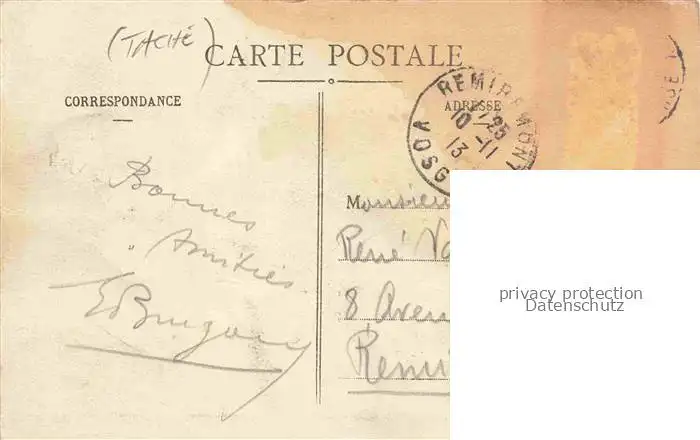 (TACHÉ)
CARTE POSTALE
CORRESPONDANCE
ADRESSE
REMIREMONT
25
10-11
13
VOSG
Bonnes
Amitiés
Monsieur
René
8 Aven
Remi
privacy protection
Datenschutz